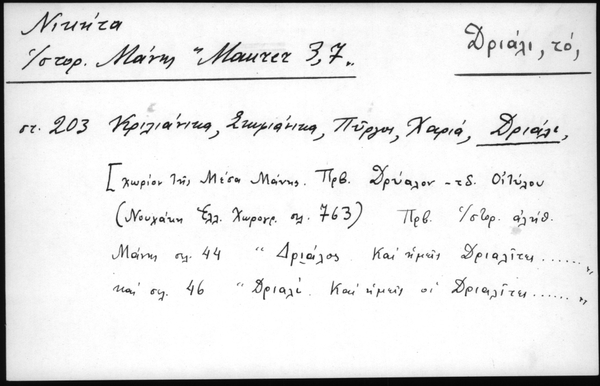 Νικήτα
Ἱστορ. Μάνης "Maurer 3,7„
Δριάλι, τό,
στ. 203 Κριλιάνικα, Σκμιάνικα, Πύργοι, Χαριά, Δριάλι,
[χωρίον τῆς Μέσα Μάνης. Πρβ. Δρύαλον -τ.δ. Οἰτύλου
(Νουχάκη Ἑλλ. Χωρογρ. σελ. 763) Πρβ. Ἱστορ. ἀλήθ.
Μάνης σελ. 44 " Δριάλος. Καὶ ἡμεῖς Δριαλῖτες ...... „
καὶ σελ. 46 " Δριαλί. Καὶ ἡμεῖς οἱ Δριαλῖτες ...... „